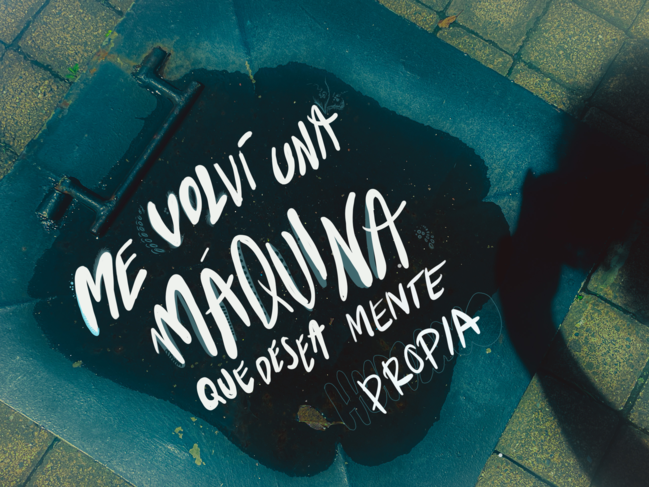 ME VOLVÍ UNA
MÁQUINA
QUE DESEA MENTE
PROPIA